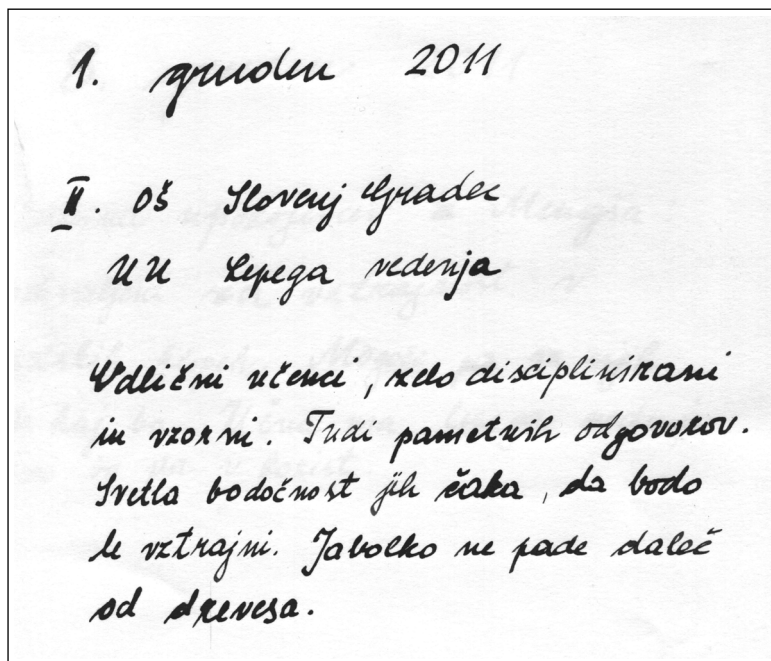 1. gruden 2011
II. OŠ Slovenj Gradec
UU Lepega vedenja
Odlični učenci, zelo disciplinirani
in vzorni. Tudi pametnih odgovorov.
Svetla bodočnost jih čaka, da bodo
le vztrajni. Jabolko ne pade daleč
od drevesa.